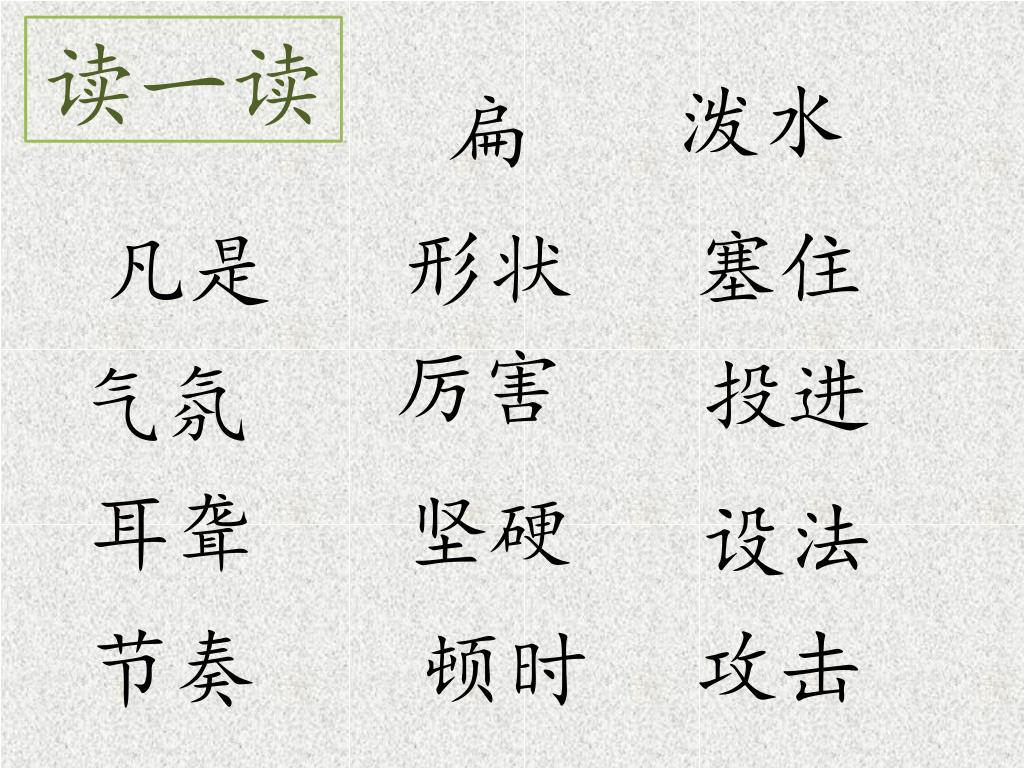 读一读
扁 泼水
凡是 形状 塞住
气氛 厉害 投进
耳聋 坚硬 设法
节奏 顿时 攻击